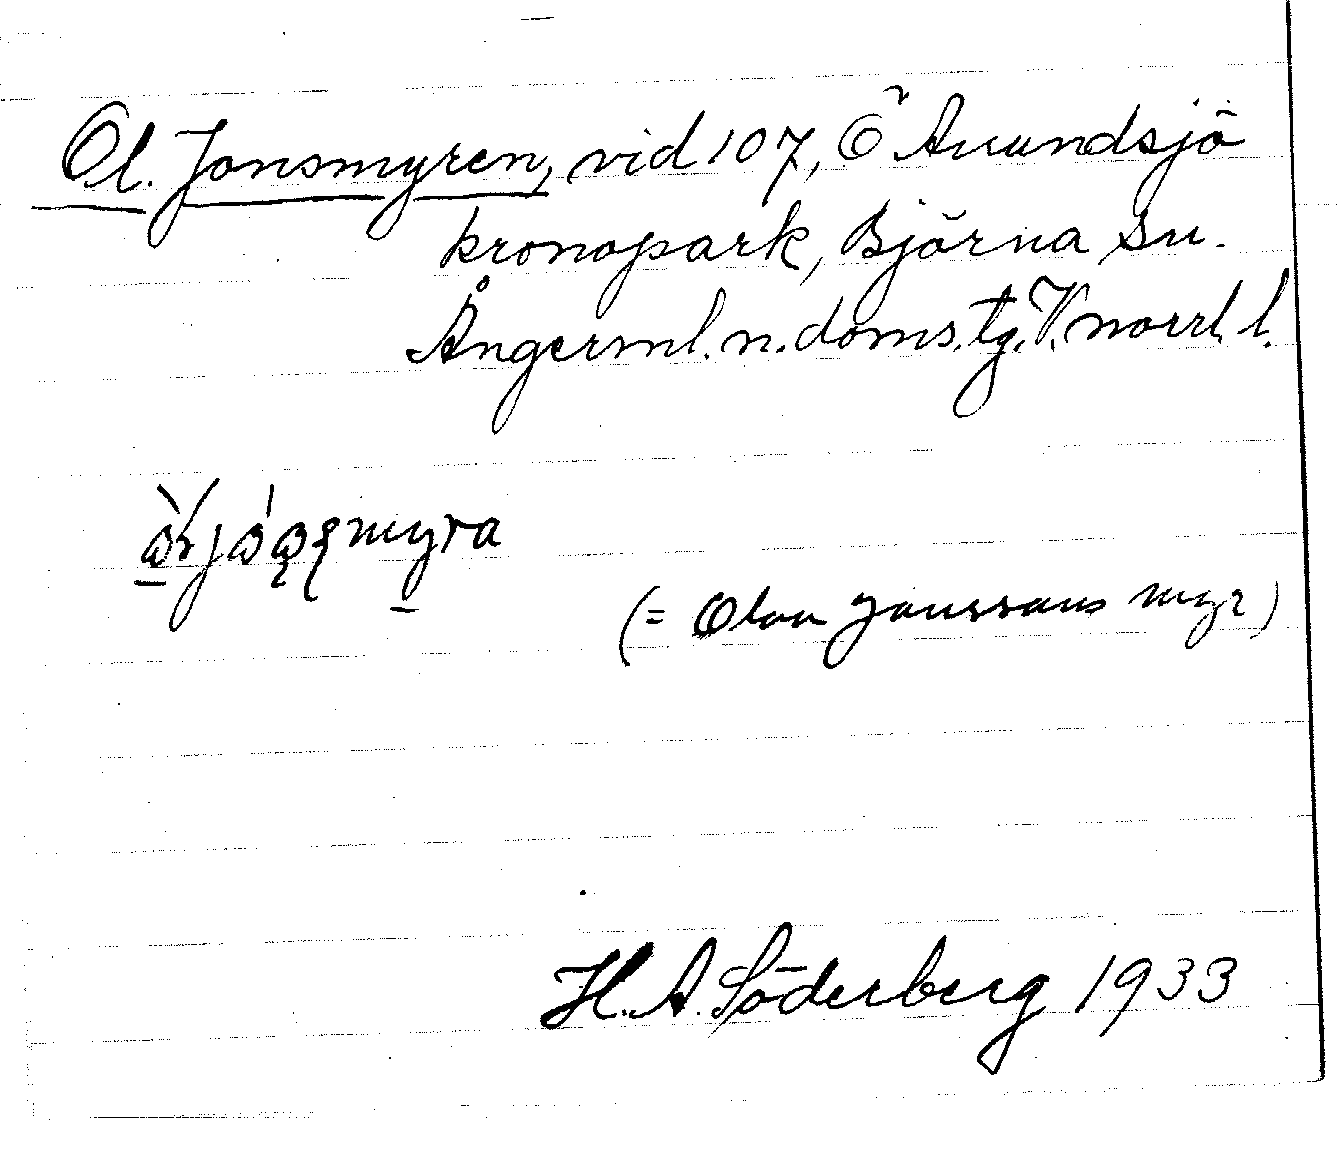 Ol. Jonsmyren, vid 107, Ö Anundsjö
kronopark, Björna sn.
Ångerml. n. doms. tg. V. norrl. l.
myra
(= Olon Jonssons myr)
H. A. Söderberg 1933